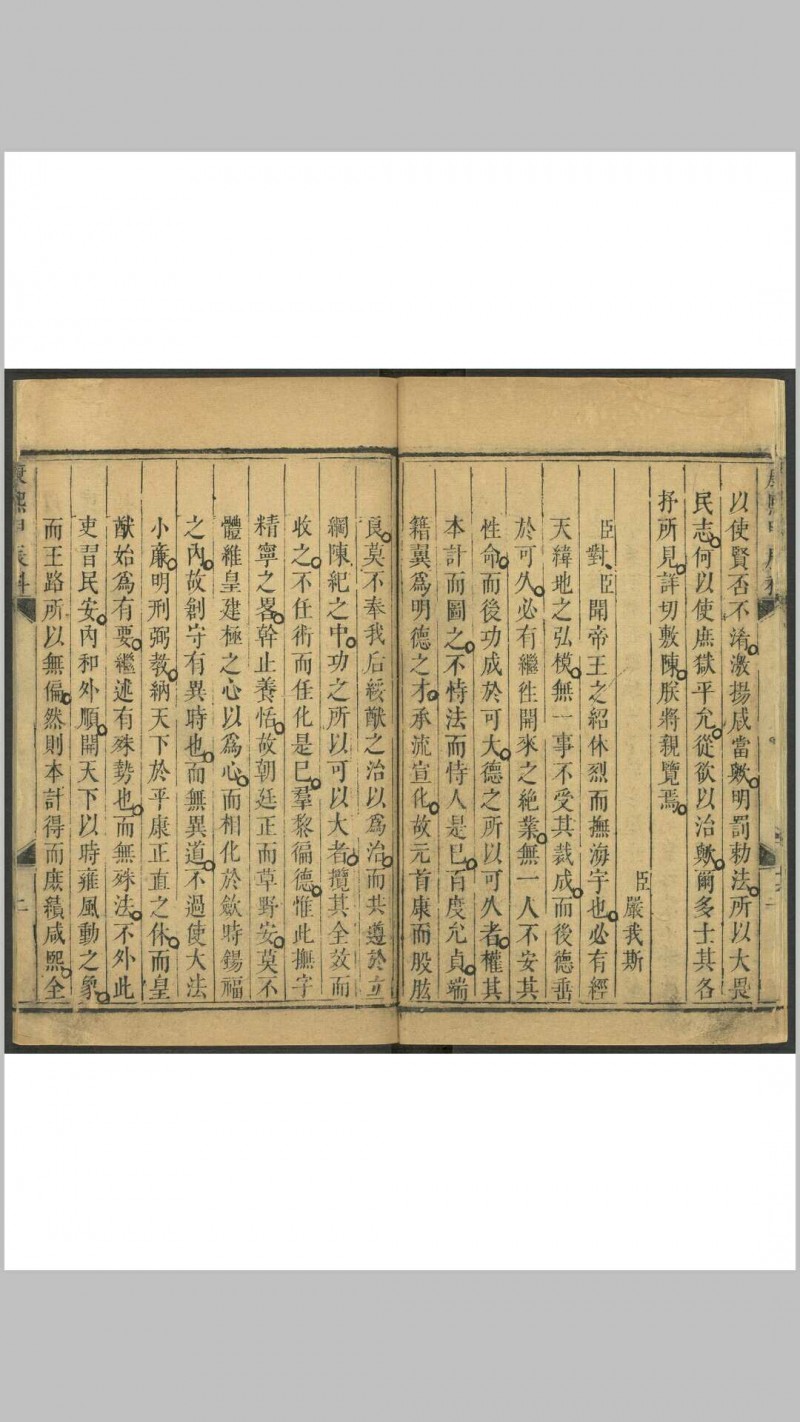 以使賢否不淆激揚咸當歟明罰勅法所以大畏
民志何以使庶獄平允從欲以治歟爾多士其各
抒所見詳切敷陳朕將親覽焉
臣嚴我斯
臣對臣聞帝王之紹休烈而撫海宇也必有經
天緯地之弘模無一事不受其裁成而後德垂
於可久必有繼徃開來之絶業無一人不安其
性命而後功成於可大德之所以可久者權其
本計而圖之不恃法而恃人是巳百度允貞端
籍翼爲明德之才承流宣化故元首康而股肱
良莫不奉我后綏猷之治以爲治而共遵於立
綱陳紀之中功之所以可以大者攬其全效而
收之不任術而任化是巳羣黎徧德惟此撫字
精寧之畧幹止養恬故朝廷正而草野安莫不
體維皇建極之心以爲心而相化於斂時錫福
之內故創守有異時也而無異道不過使大法
小廉明刑弼教納天下於平康正直之休而皇
猷始爲有要繼述有殊勢也而無殊法不外此
吏習民安內和外順開天下以時雍風動之象
而王路所以無偏然則本計得而庶績咸熙全
二